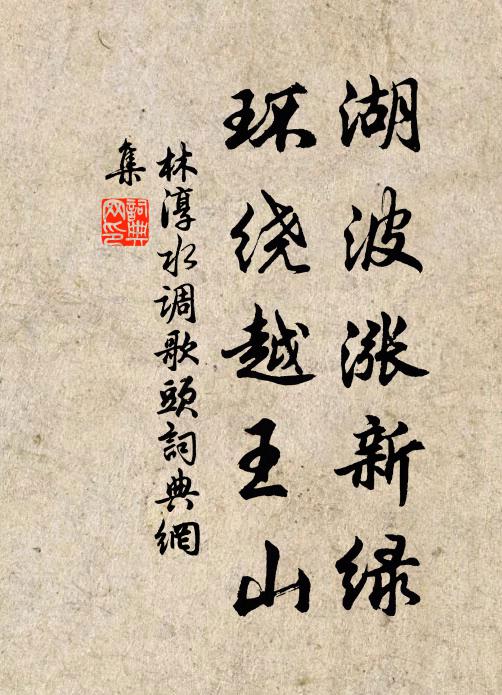 湖波涨新绿
环绕越王山
林淳水调歌头詞典網
集
詞典網印